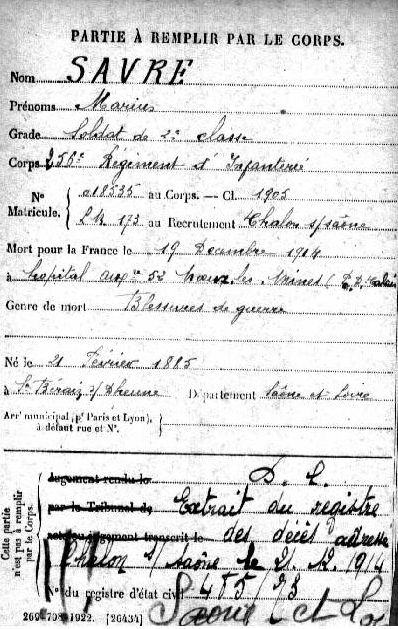 PARTIE À REMPLIR PAR LE CORPS.
Nom SAVRE
Prénoms Marius
Grade Soldat de 2e classe
Corps 256e Régiment d'Infanterie
No Matricule. 018535 au Corps. — Cl. 1905
LM 173 au Recrutement Chalon s/saône
Mort pour la France le 19 Décembre 1914
à hopital aux re 52 Noeux les Mines (P. D. Calais
Genre de mort Blessures de guerre
Né le 21 Février 1885
à St Bérain s/ Dheune Département Saône et Loire
Arrt municipal (pr Paris et Lyon), à défaut rue et No.
Cette partie n'est pas à remplir par le Corps.
Jugement rendu le D. L.
par le Tribunal de Extrait du registre
acte ou jugement transcrit le des décès adressé
Chalon s/ Saône le 21. 12. 1914
No du registre d'état civil 455/73
Saône et Lo
269-708-1922. [26434]